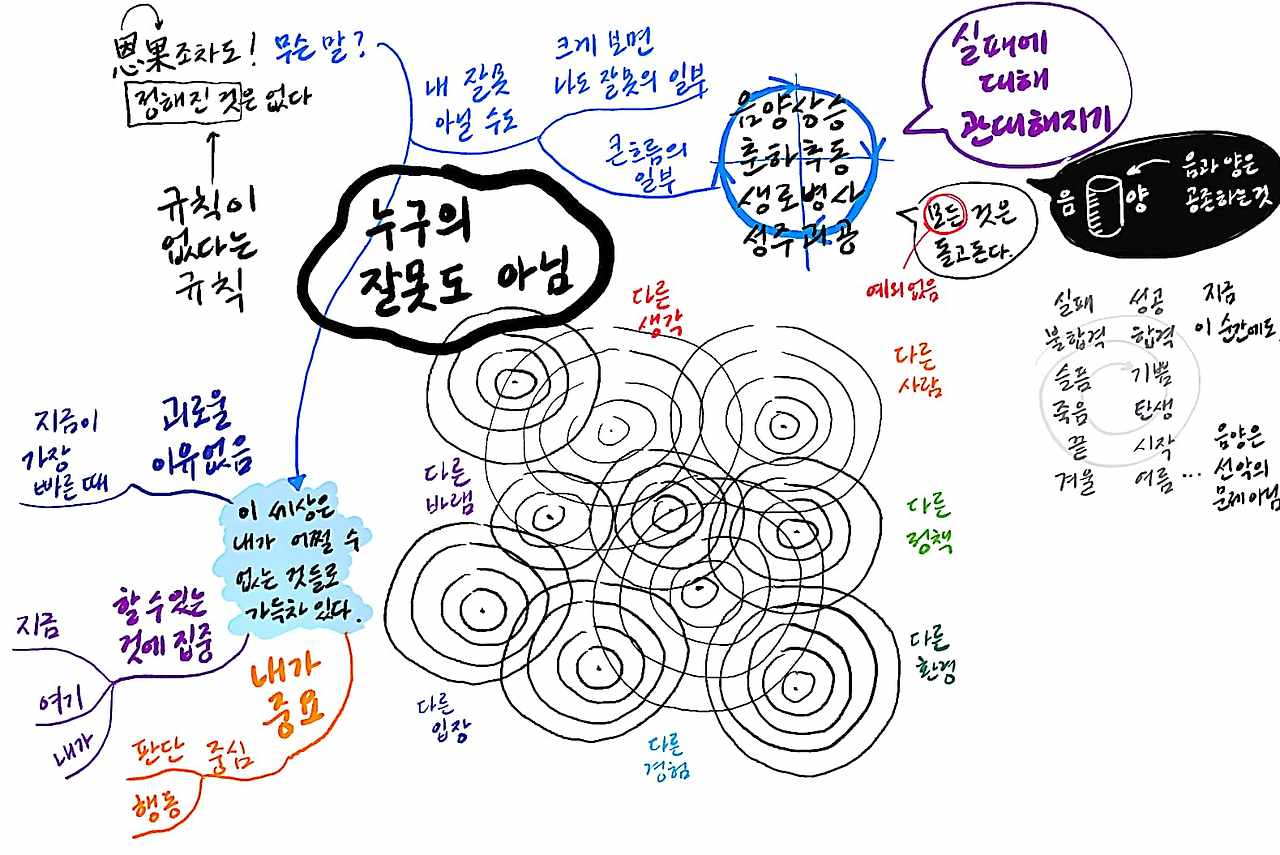 恩果조차도!
정해진 것은 없다
규칙이
없다는
규칙
무슨 말?
내 잘못
아닐 수도
크게 보면
나도 잘못의 일부
큰흐름의
일부
음양상승
춘하추동
생로병사
성주괴공
실패에
대해
관대해지기
모든 것은
돌고돈다.
예외없음
음 양
음과 양은
공존하는 것
실패 성공 지금
불합격 합격 이 순간에도
슬픔 기쁨
죽음 탄생
끝 시작
겨울 여름 ...
음양은
선악의
문제아님
누구의
잘못도 아님
다른
생각
다른
사람
다른
바램
다른
정책
다른
환경
다른
입장
다른
경험
지금이
가장
빠른 때
괴로울
이유없음
이 세상은
내가 어쩔 수
없는 것들로
가득차 있다.
할 수 있는
것에 집중
지금
여기
내가
내가
중요
판단 중심
행동